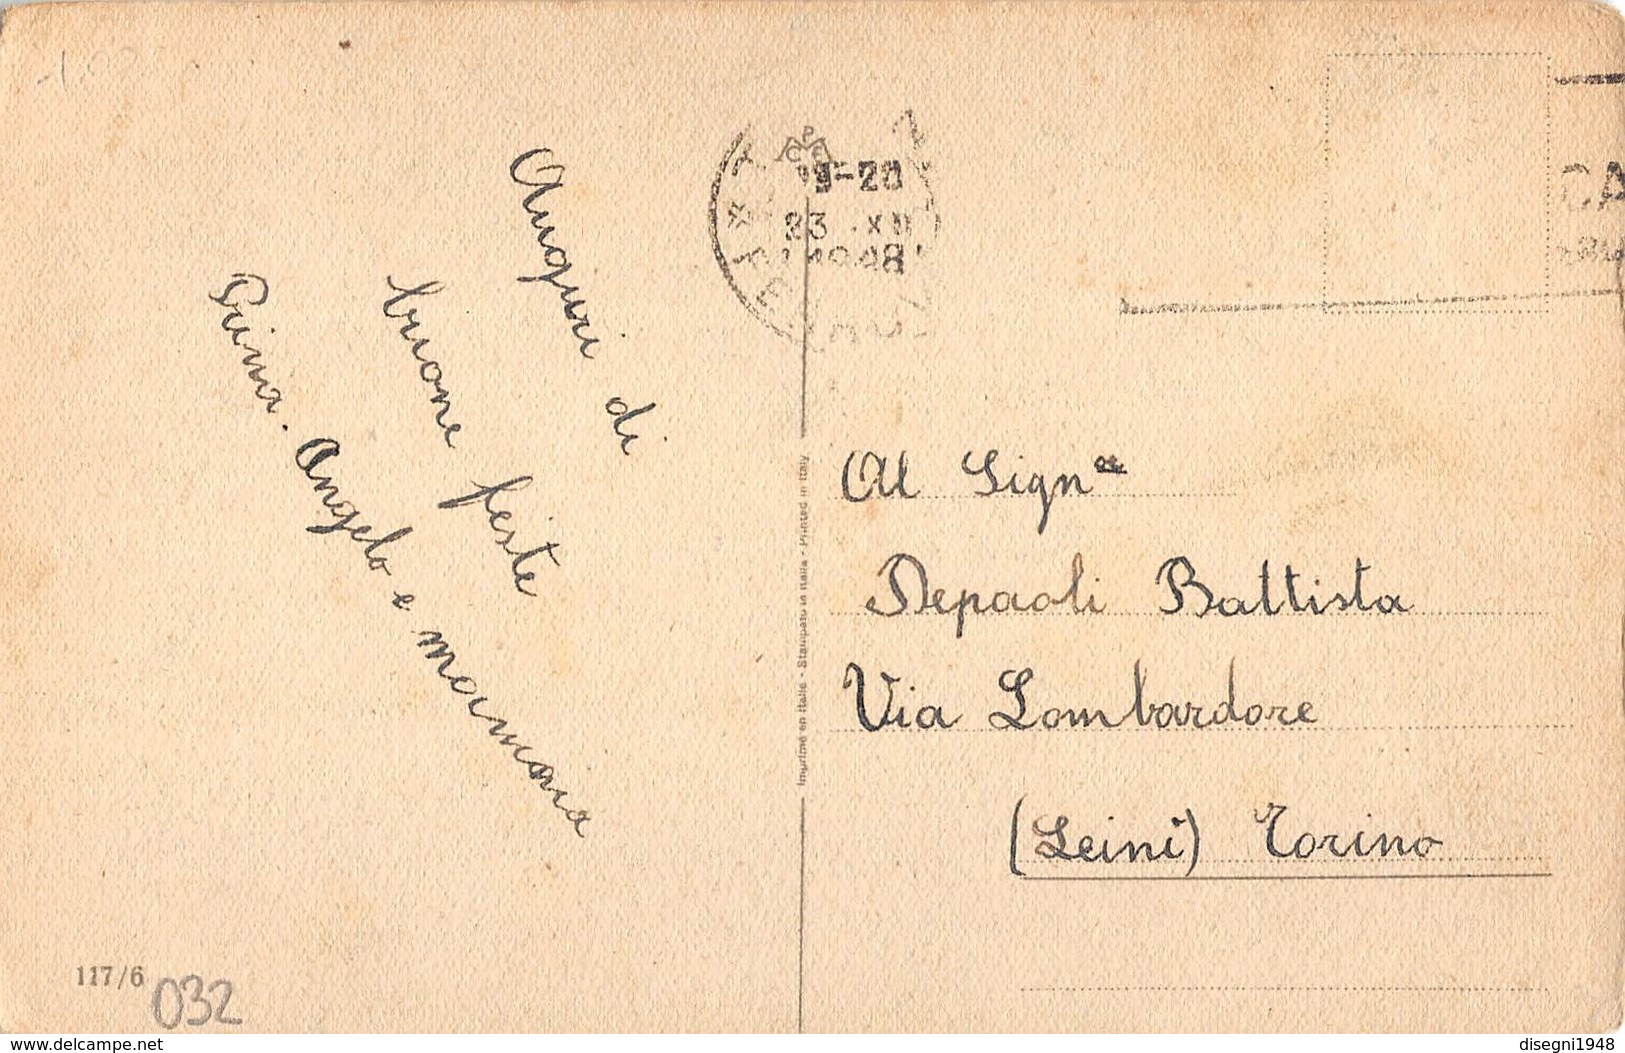 Auguri di
buone feste
Prima. Angelo e mamma
P
C E
19-20
23 XII
1948
CA
Al Sign.
Depaoli Battista
Via Lombardore
(Leini) Torino
Imprimé en Italie - Stampato in Italia - Printed in Italy
117/6
032
delcampe.net
disegni1948